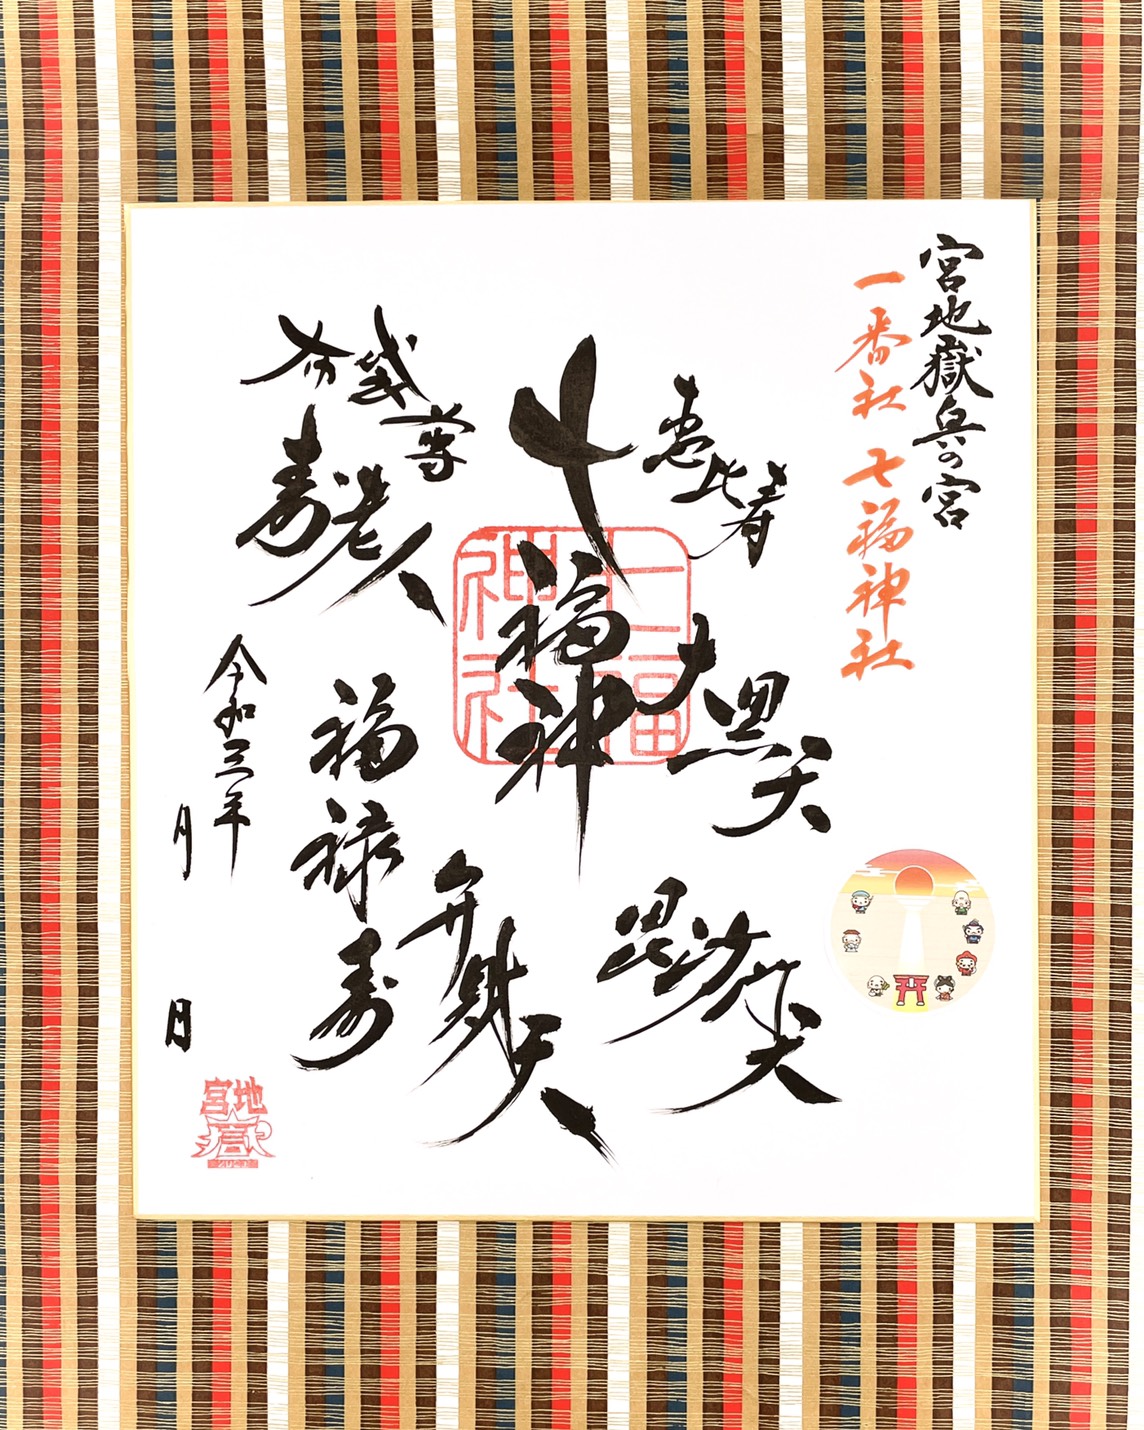 宮地嶽奥の宮
一番社 七福神社
恵比寿
大黒天
毘沙門天
七福神
七福神社
弁財天
布袋尊
寿老人
福禄寿
令和三年
月 日
宮地嶽